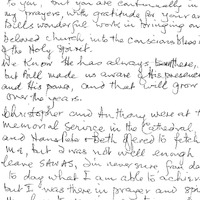 to you, but you are continually in
my prayers, with gratitude for your and
Bill's wonderful work in bringing our
beloved church into the Conscious
of the Holy Spirit.
We know He has always been there,
but Bill made us aware of His presence
and His power, and that will grow
over the years.
Christopher and Anthony were at the
Memorial Service in the Cathedral
and + Beth offered to fetch
me, but I was not well enough
leave SAVAS, I'm never sure from day
to day what I am able to achieve
but I was there in prayer and